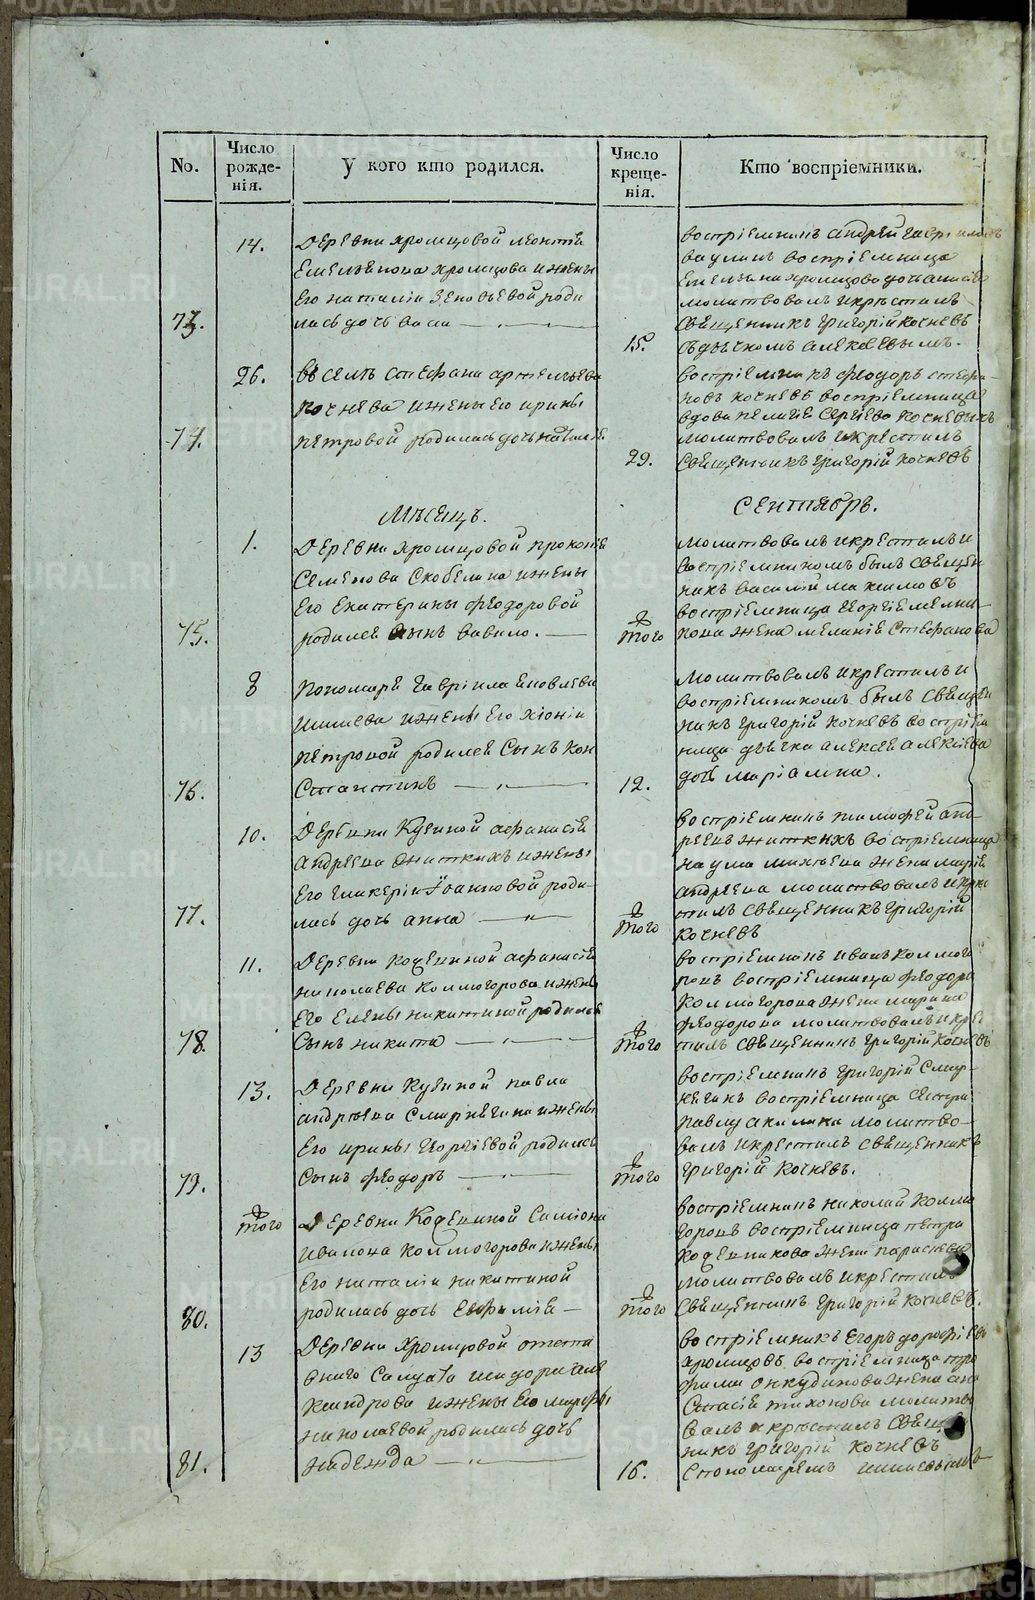 METRIKI.GASO-URAL.RU
No.
Число рожде-нія.
У кого кто родился.
Число креще-нія.
Кто воспріемники.
73.
14.
Деревни хромцовой леонтія
Емельянова хромцова и жены
Его наталіи Зеновьевой роди
лась дочь васа
15.
воспріемникъ андрей гавриловъ
ваулинъ воспріемница
Емельяна хромцова дочь
молитвовалъ и крѣстилъ
Священникъ григорій кочневъ
съ дьячкомъ алекѣевымъ.
74.
26.
въ селѣ стефана артемьева
кочнева и жены его ирины
петровой родилась дочь наталія.
29.
воспріемникъ феодоръ стефа-
новъ кочневъ воспріемница
вдова пелагія Сергіева кочневыхъ
молитвовалъ и крестилъ
Священникъ григорій кочневъ
Мѣсяцъ.
Сентябрь.
75.
1.
Деревни хромцовой прокопія
Семенова Скобелина и жены
Его Екатерины феодоровой
родился сынъ вавило.
того
молитвовалъ и крестилъ и
воспріемникомъ былъ священ
никъ василій максимовъ
воспріемница георгія мелни-
кова жена меланія Стефанова
76.
8
пономаря гавріила яковлева
ишиева и жены его хіоніи
петровой родился Сынъ кон
стантинъ
12.
молитвовалъ и крестилъ и
воспріемникомъ былъ священ
никъ григорій кочневъ воспріем
ница дьячка алексея алексіева
дочь маріамна.
77.
10.
Деревни Кузиной афанасія
андреева житкихъ и жены
Его гликеріи Іоанновой роди-
лась дочь анна
того
воспріемникъ тимофей анд-
реевъ житкихъ воспріемница
наума михѣева жена марія
андреева молитвовалъ и кре
стилъ священникъ григорій
кочневъ
78.
11.
Деревни кощенной афанасія
николаева колмогорова и жены
Его Елены никитиной родился
Сынъ никита
того
воспріемникъ иванъ колмого
ровъ воспріемница феодора
колмогорова жена марина
феодорова молитвовалъ и кре
стилъ священникъ григорій кочневъ
79.
13.
Деревни Кузиной павла
андрѣева Смарнягина и жены
Его ирины георгіевой родился
Сынъ феодоръ
того
воспріемникъ григорій Смар-
нягинъ воспріемница сестра
павлу акилина молитво-
валъ и крестилъ священникъ
григорій кочневъ.
80.
того
Деревни Кощенной Самсона
иванова колмогорова и жены
Его наталіи никитиной
родилась дочь Евфимія
того
воспріемникъ николай колмо
горовъ воспріемница петра
кощенникова жена парасковья
молитвовалъ и крестилъ
Священникъ григорій кочневъ.
81.
13
Деревни хромцовой отста
внаго Салдата исидора але
ксандрова и жены его марфы
николаевой родилась дочь
надежда
16.
воспріемникъ Егоръ дорофіевъ
хромцовъ воспріемница тро
фима онкудинова жена ана
стасія тихонова молитво
валъ и крѣстилъ Священ
никъ григорій кочневъ
Спономаремъ ишиевымъ